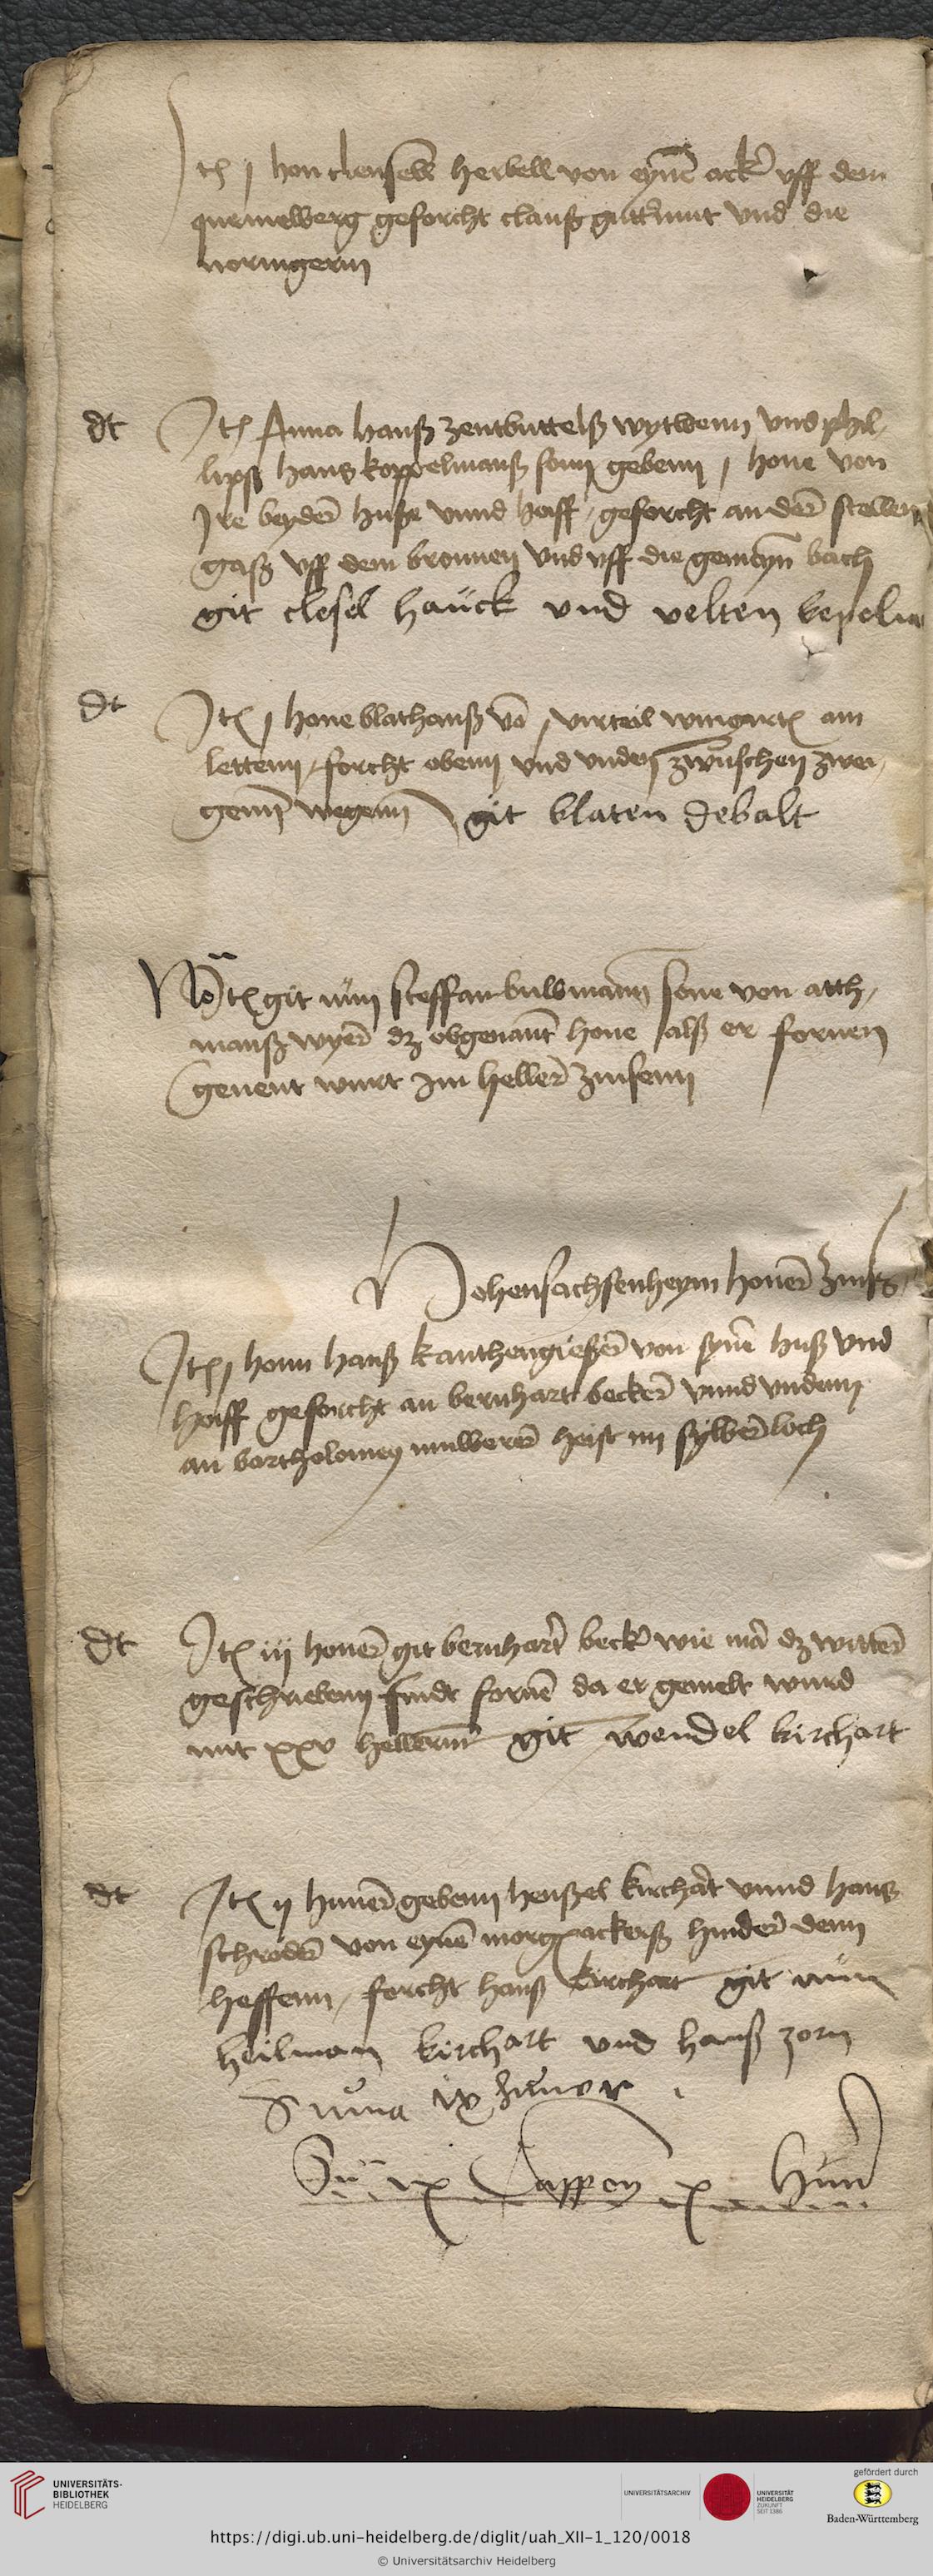 Itē j hon clensel herbell von eynē ackẽ uff dem
geforcht clauß und die
noringerin
dt Itē Anna hanß zentbuttelß wytwenn und phil
lipß hans koppelmanß sonn gebenn j hone von
Ire beydeñ huße unnd hoiff geforcht an deñ
gaß uff dem bronnen und uff die gemeyn bach
git clesel hauck und velten
dt Itē j hone blathanß vō j virteil wingartē am
lettenn forcht obenn und unden zwuschen zwei
genn wegenn git blaten debalt
git nun steffan sone von
manß dz obgenant hone alß er fornen
genent wurt im heller zinsenn
Hohensachsenheym honeř zinß
Itē j honn hanß kanthengießer von synē huß und
hoiff geforcht an bernhart becker unnd undenn
an bartholomeg heist im sylberloch
dt Itē iij honer git bernhart becker wie mā dz witter
geschriebenn findt fornē da er gemelt wurd
mit xxv hellernn git wendel kirchart
dt Itē ij hunner gebenn henßel kirchart unnd hans
schroder von eynē morgē ackerß hinder denn
heffenn forcht hanß kirchart git nun
heilman kirchart und hanß zorn
Suma ix huner
Sū ix Cappen x hun
UNIVERSITÄTS-
BIBLIOTHEK
HEIDELBERG
UNIVERSITÄTSARCHIV
UNIVERSITÄT
HEIDELBERG
ZUKUNFT
SEIT 1386
gefördert durch
Baden-Württemberg
https://digi.ub.uni-heidelberg.de/diglit/uah_XII-1_120/0018
© Universitätsarchiv Heidelberg